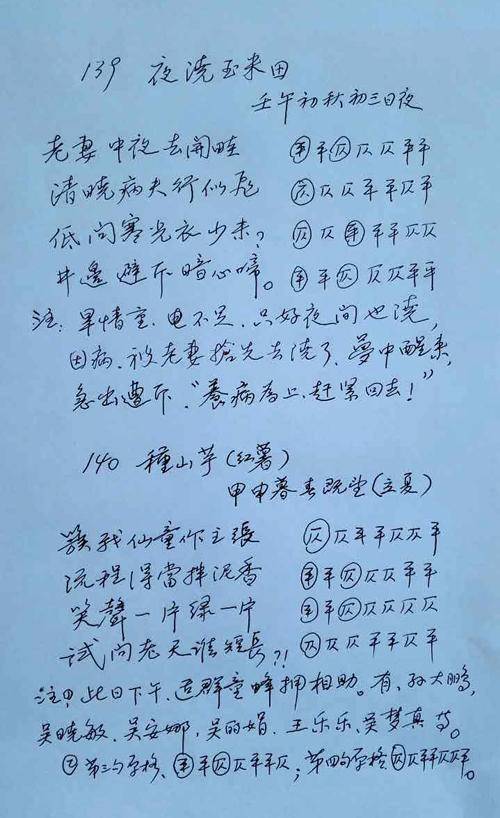 139 夜浇玉米田
壬午初秋初三日夜
老妻中夜去開畦 ㊣平㊣仄仄平平
清曉病夫行似 仄仄仄平平仄平
低问寒光衣少未？ 仄仄平平平仄仄
井邊避斥暗心啼。 平平仄仄仄平平
注：旱情重，电不足，只好夜间也浇，
因病，被老妻搶先去浇了，夢中醒来，
急出遭斥，“養病为上，赶紧回去！”
140 種山芋（红薯）
甲申暮春既望（立夏）
簇我仙童作主張 仄仄平平仄仄平
流程得當拌泥香 平平仄仄仄平平
笑聲一片绿一片 平平仄仄仄仄仄
试问老天谁短長？！ 仄仄仄平平仄平
注①此日下午，逗群童蜂拥相助。有，孙大鹏，
吴晓敏，吴安娜，吴的娟，王乐乐，吴梦真等。
②第三句字格，平平仄仄平平仄；第四句字格仄仄平平仄仄平。